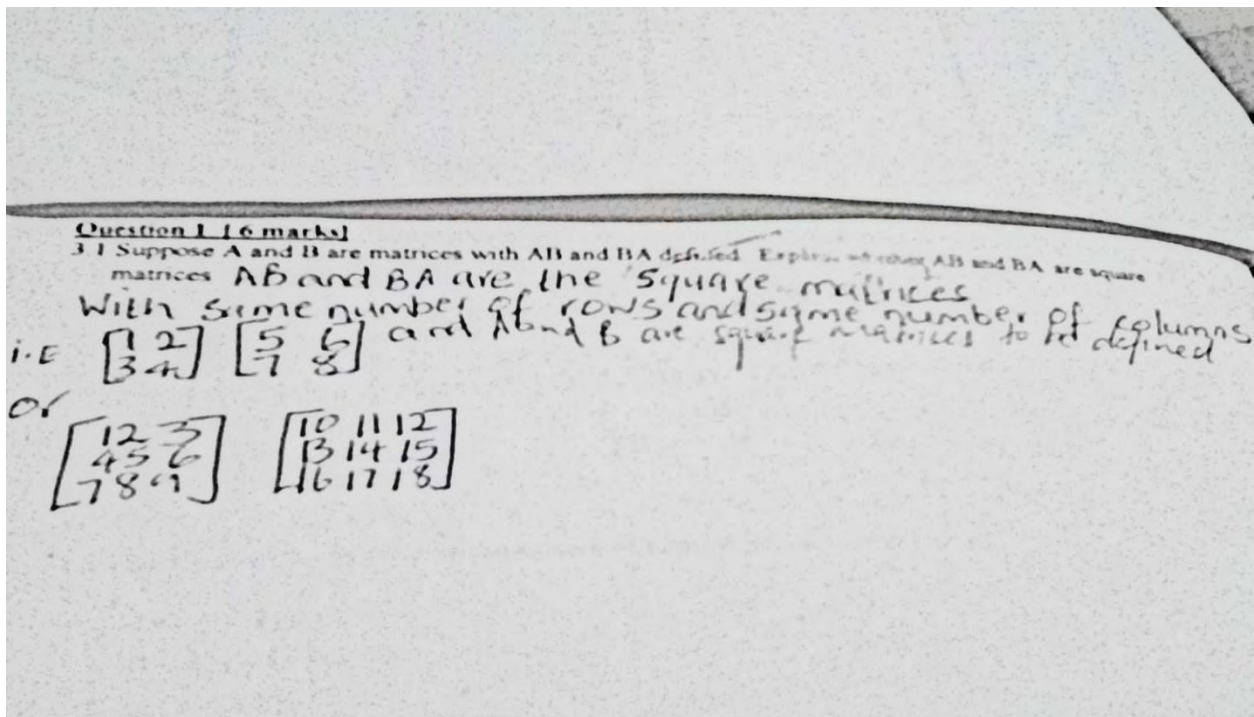 Question 1 [6 marks]
3.1 Suppose A and B are matrices with AB and BA defined. Explain whether AB and BA are square
matrices AB and BA are the square matrices
With same number of rows and same number of columns
i.E [1 2 [5 6 and A and B are square matrices to be defined
3 4] 7 8]
or
[1 2 3 [10 11 12
4 5 6 13 14 15
7 8 9] 16 17 18]